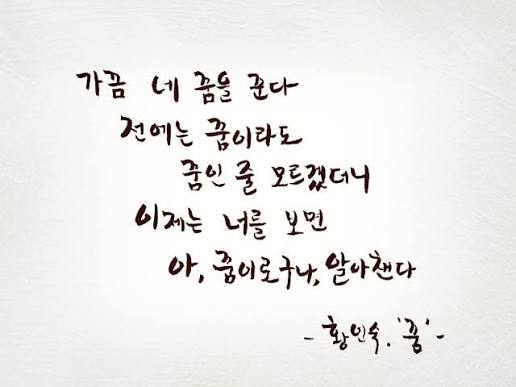 가끔 네 꿈을 꾼다
전에는 꿈이라도
꿈인 줄 모르겠더니
이제는 너를 보면
아, 꿈이로구나, 알아챈다
- 황인숙. '꿈' -